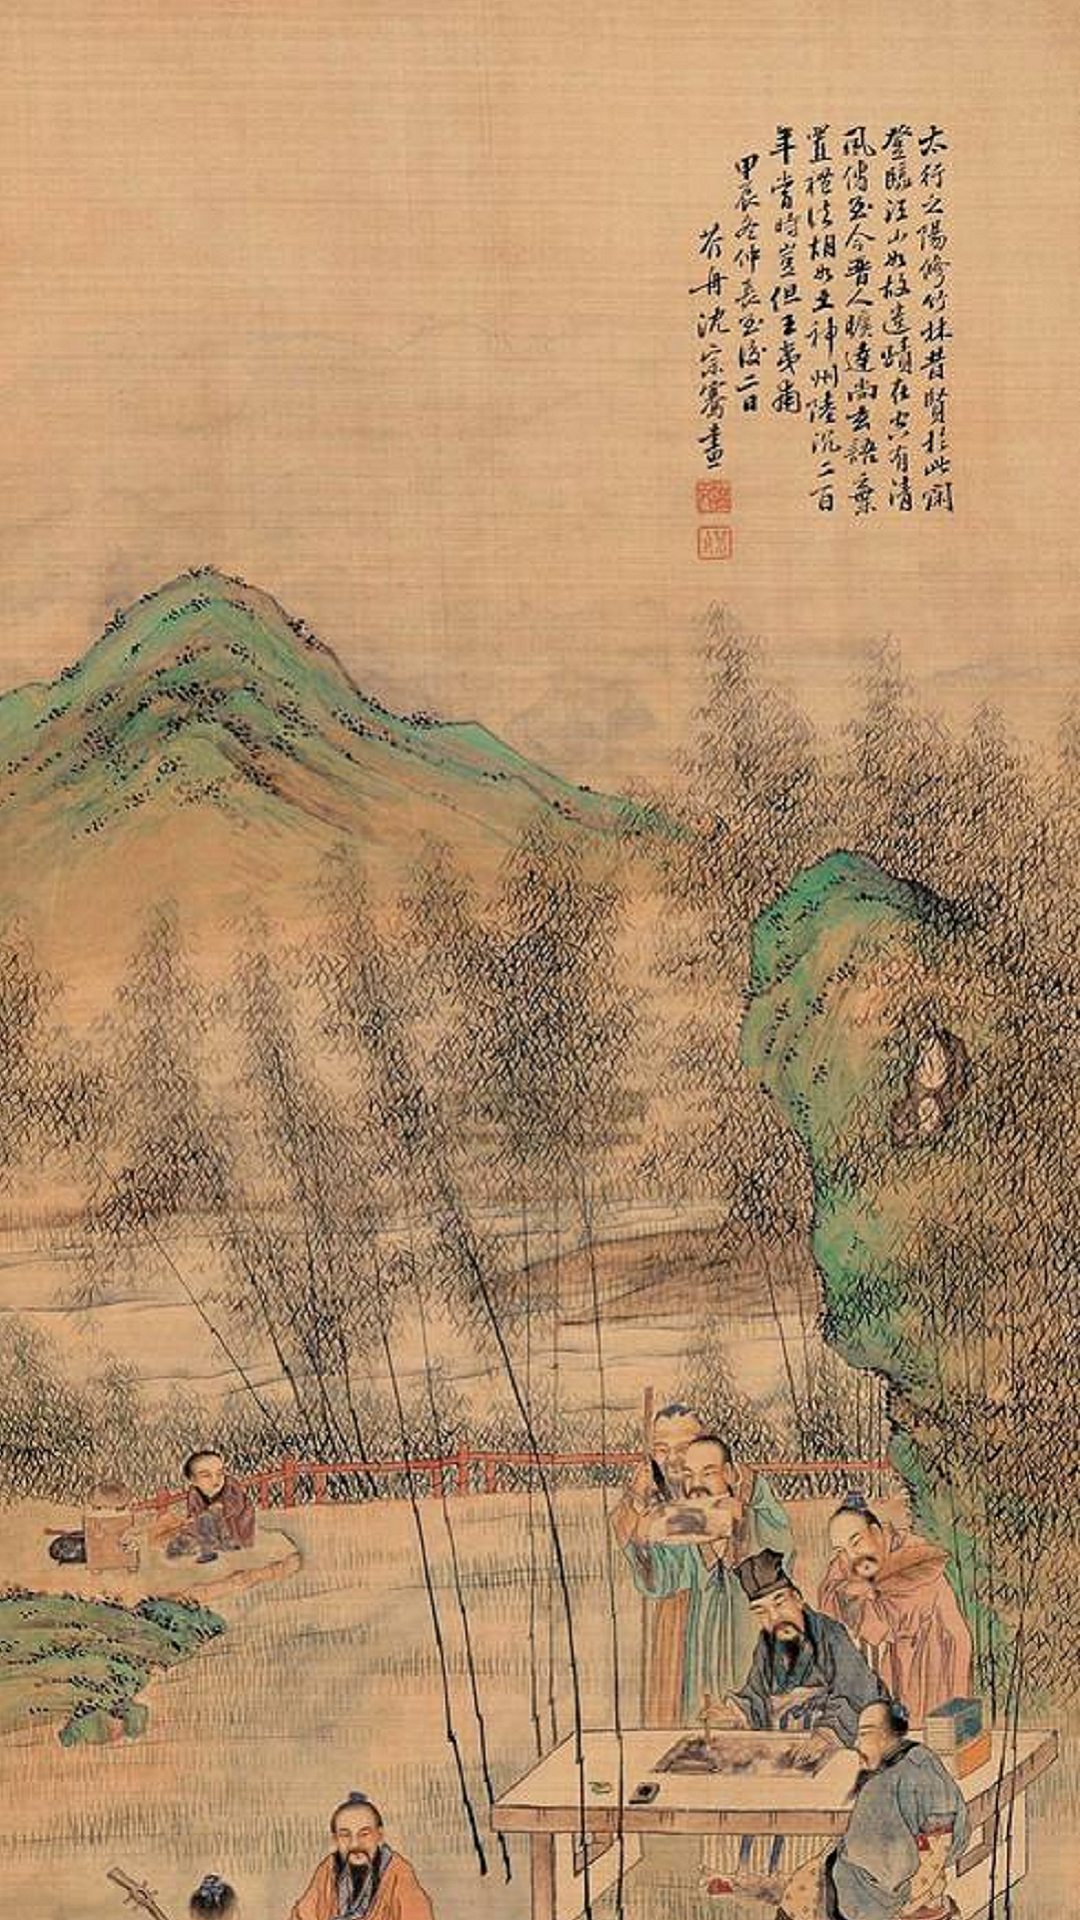 太行之陽修竹林昔賢於此閑
登臨江山如故遺蹟在空有清
風傳至今晉人曠達尚玄語棄
置禮法胡如土神州陸沉二百
年當時豈但王夷甫
甲辰冬仲長至後二日
芥舟沈宗騫畫